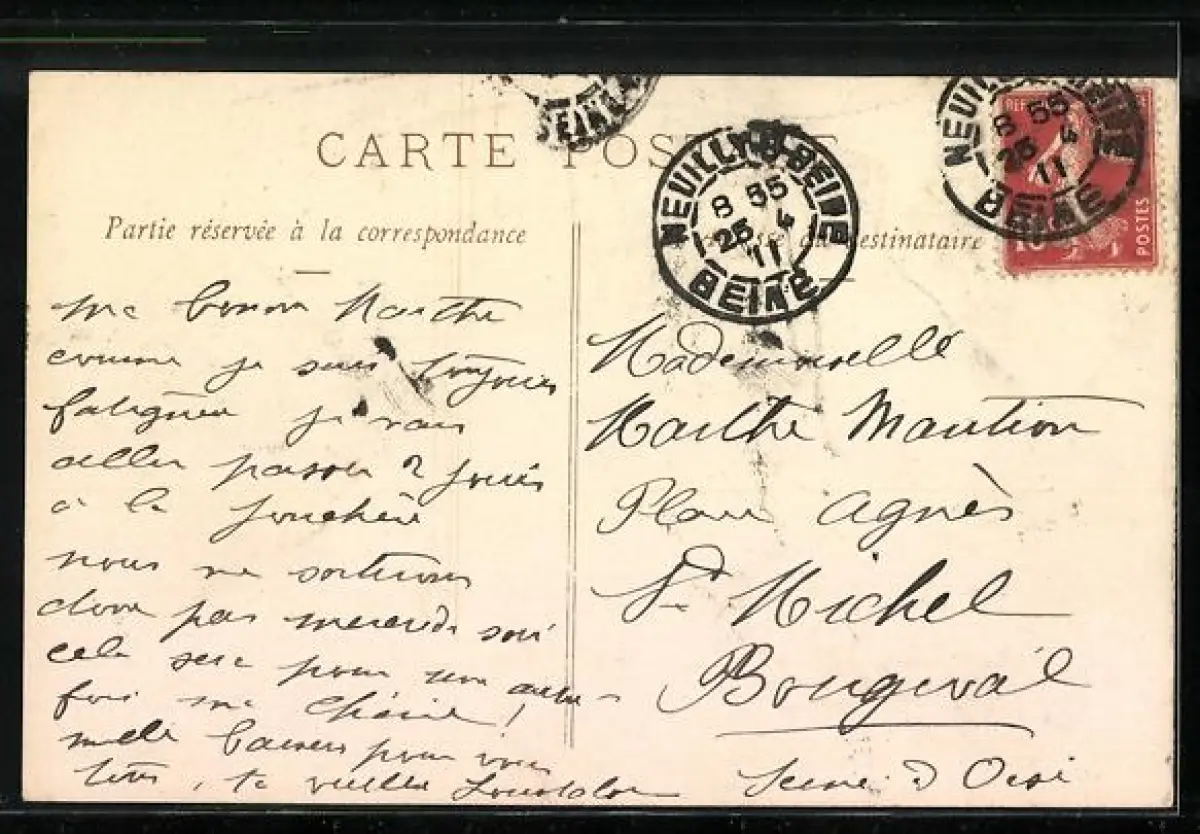 CARTE POSTALE
Partie réservée à la correspondance
destinataire
NEUILLY-S-SEINE
8 55
25 4
11
SEINE
NEUILLY SEINE
8 55
25 4
11
SEINE
SEINE
REF
10
POSTES
ma bonne Marthe
comme je suis toujours
fatiguée je vais
aller passer 2 jours
à la Jonchère
nous ne sortirons
donc pas mercredi soir
cela sera pour une autre
fois ma chérie !
mille baisers pour vous
tous, ta vieille
Mademoiselle
Marthe Maution
Place Agnès
St Michel
Bougival
Seine & Oise